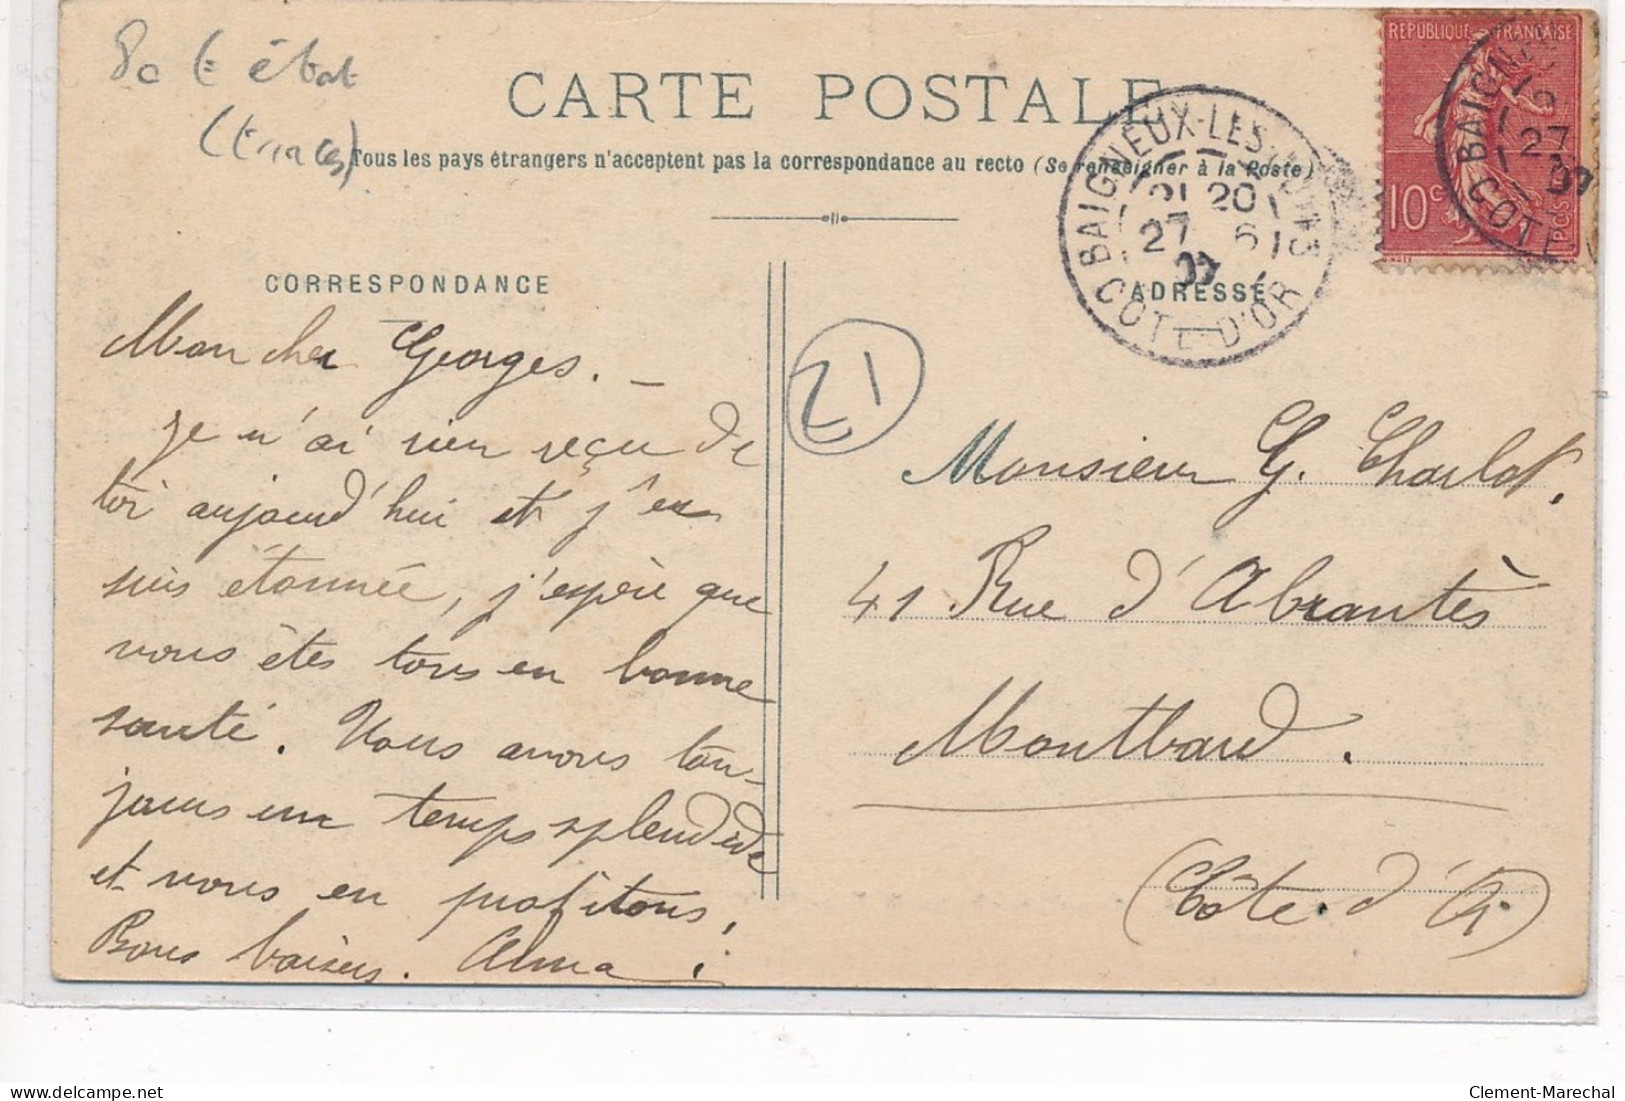 Bo t état
(traces)
CARTE POSTALE
Tous les pays étrangers n'acceptent pas la correspondance au recto (Se renseigner à la Poste)
REPUBLIQUE FRANÇAISE
10c
BAIGNEUX-LES-JUIFS
21 20
27 6
07
COTE-D'OR
BAIGNEUX
27
07
COTE
CORRESPONDANCE
ADRESSE
21
Mon cher Georges. _
je n'ai rien reçu de
toi aujourd'hui et j'en
suis étonnée, j'espère que
vous êtes tous en bonne
santé. Nous avons tou-
jours un temps splendide
et nous en profitons,
Bons baisers. Alma
Monsieur G. Charlot.
41 Rue d'Abrantès
Montbard.
(Côte d'Or)
delcampe.net
Clement-Marechal